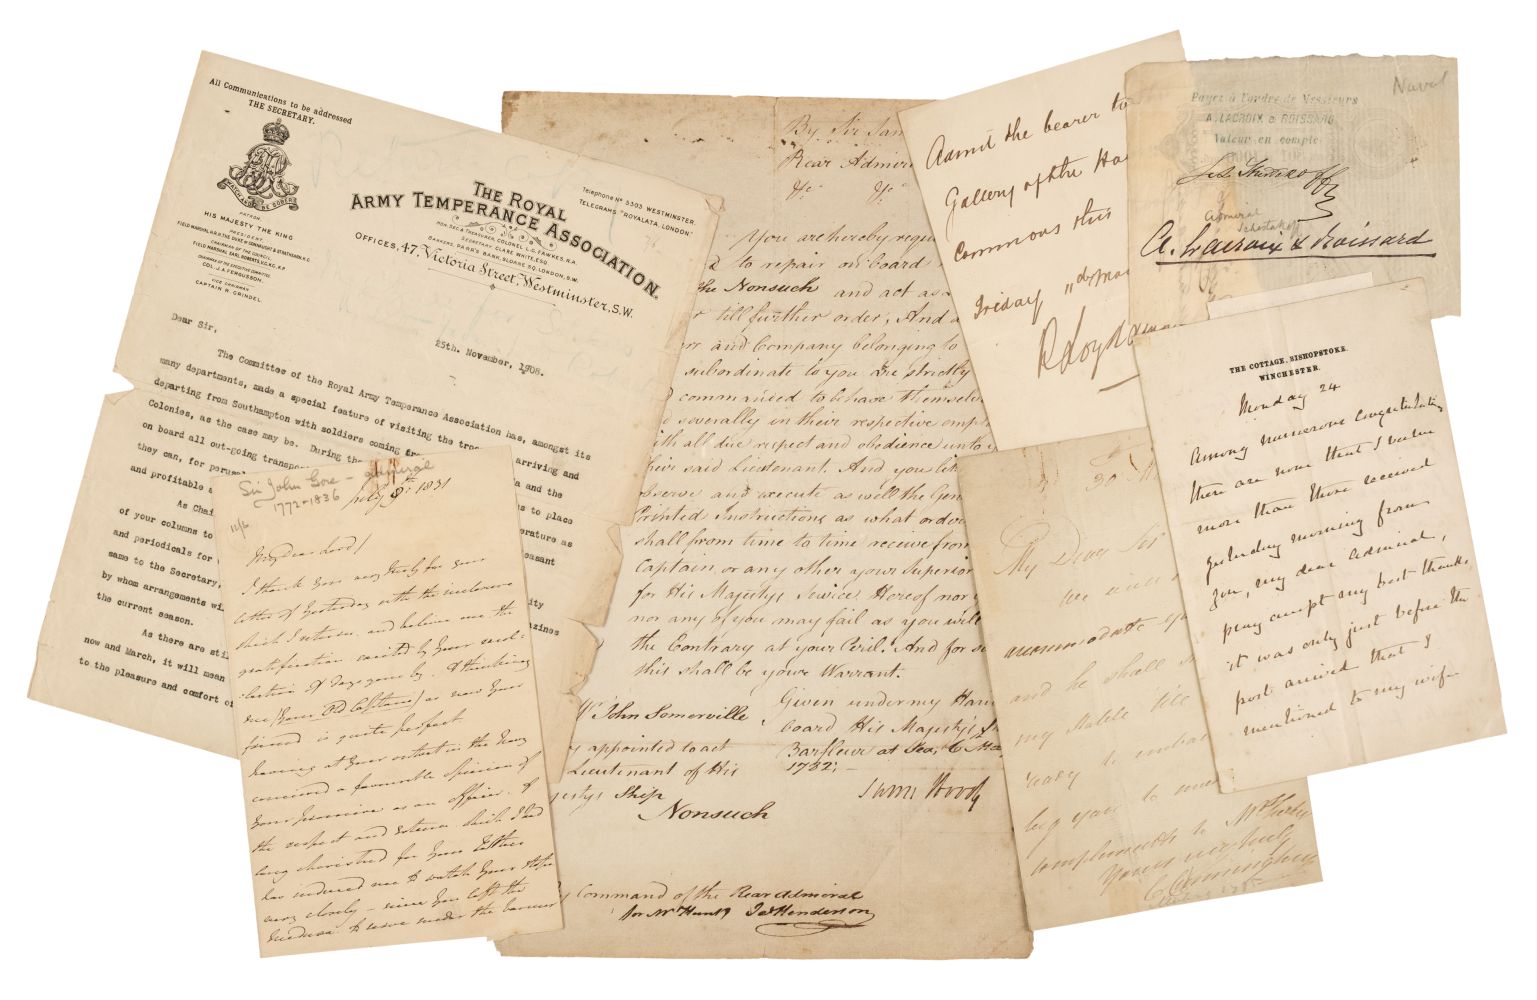 All Communications to be addressed
THE SECRETARY.
WATCH AND BE SOBER
PATRON
HIS MAJESTY THE KING
PRESIDENT
FIELD MARSHAL H.R.H. THE DUKE OF CONNAUGHT & STRATHEARN, K.G.
CHAIRMAN OF THE COUNCIL
FIELD MARSHAL EARL ROBERTS, V.C., K.G., K.P.
CHAIRMAN OF THE EXECUTIVE COMMITTEE
COL. J.A. FERGUSSON.
VICE CHAIRMAN
CAPTAIN R. GRINDEL
THE ROYAL
ARMY TEMPERANCE ASSOCIATION.
HON. SEC. & TREASURER, COLONEL L.G. FAWKES, R.A.
SECRETARY, CLARE WHITE, ESQ.
BANKERS, PARR'S BANK, SLOANE SQ. LONDON, S.W.
OFFICES, 47, Victoria Street, Westminster, S.W.
Telephone No 5303 WESTMINSTER.
TELEGRAMS "ROYALATA, LONDON"
25th. November, 1908.
Dear Sir,
The Committee of the Royal Army Temperance Association has, amongst its
many departments, made a special feature of visiting the tro arriving and
departing from Southampton with soldiers coming fr and the
Colonies, as the case may be. During the
on board all out-going transpo s to place
they can, for perusal erature as
and profitable a easant
As Chai
of your columns to
and periodicals for
same to the Secretary,
by whom arrangements wi ity
the current season. azines
As there are sti
now and March, it will mean
to the pleasure and comfort of
Sir John Gore - admiral
1772-1836
July 9th 1831
My dear Lord/
I thank you very truly for your
letter of yesterday with the inclosure
which I return and believe me the
gratification excited by your recol-
lection of days gone by, & thinking
me (your Old Captain) as now your
friend is quite perfect
having at your outset in the Navy
conceived a favourable opinion of
your promise as an officer, &
the respect and esteem which I had
long cherished for your Father
has induced me to watch your steps
very closely - since you left the
Medusa to serve under the banner
By Sir Sam
Rear Admir
&c &c
You are hereby requ
to repair on board
the Nonsuch and act as
till further order, And
and Company belonging to
subordinate to you are strictly
commanded to behave themselv
severally in their respective empl
with all due respect and obedience unto
their said Lieutenant. And you lik
observe and execute as well the Gen
Printed Instructions as what orde
shall from time to time receive from
Captain, or any other your Superior
for His Majestys Service. Hereof nor
nor any of you may fail as you will
the Contrary at your Peril. And for so
this shall be your Warrant.
Mr John Somerville
appointed to act
Lieutenant of His
Ship
Nonsuch
Given under my Han
board His Majesty's S
Barfleur at Sea, 6 Ma
1782;-
Saml Hood
Command of the Rear Admiral
for Mr Hunt Jas Henderson
Admit the bearer to
Gallery of the Ho
Commons this
Friday 11th Ma
Payez à l'ordre de Messieurs
A. LACROIX & ROISSARD
Valeur en compte
Naval
Admiral
A. Lacroix & Roissard
30
My Dear Sir
we
accommodate
and he shall
my stable
ready to
beg you to
compliments to Mrs
Yours very truly
THE COTTAGE, BISHOPSTOKE.
WINCHESTER.
Monday 24
Among numerous congratulations
there are none that I value
more than those received
yesterday morning from
you, my dear Admiral,
pray accept my best thanks,
it was only just before the
post arrived that I
mentioned to my wife